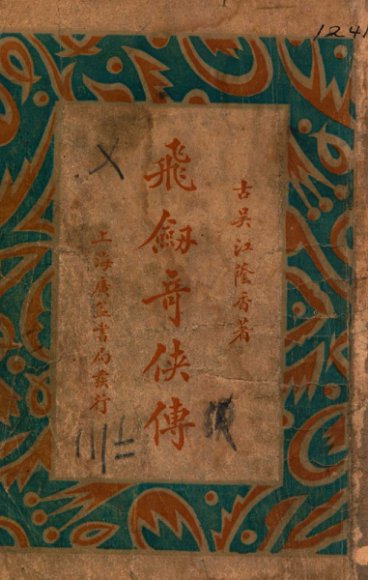 1241
古吳江蔭香著
飛劔奇俠傳
上海廣益書局發行